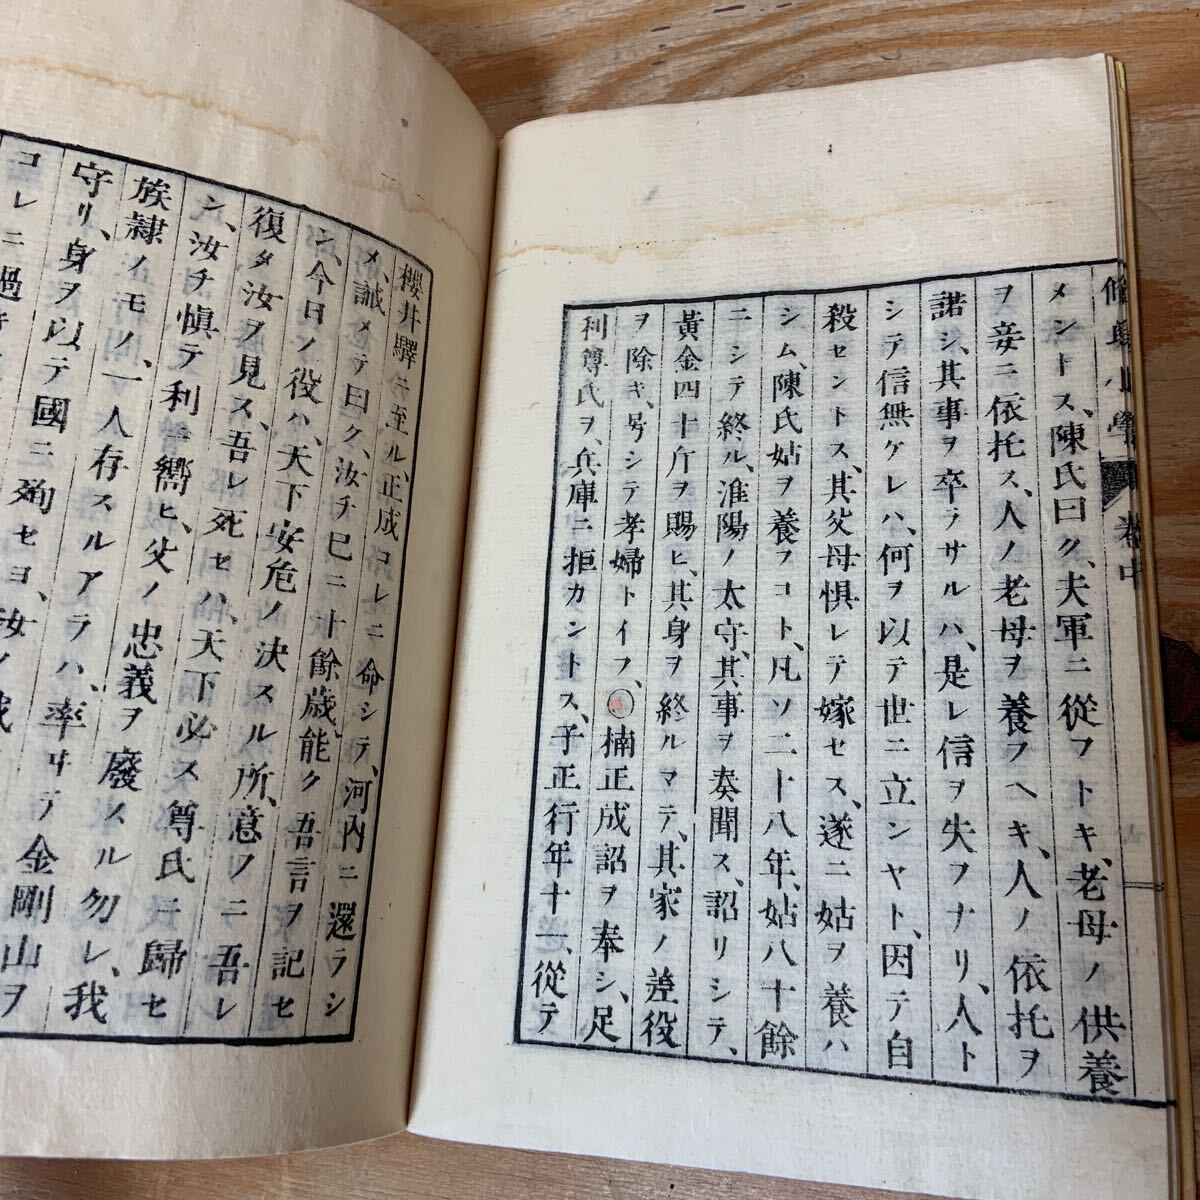 修身小學 卷中
メントス、陳氏曰ク、夫軍ニ從フトキ、老母ノ供養
ヲ妾ニ依托ス、人ノ老母ヲ養フヘキ、人ノ依托ヲ
諾シ、其事ヲ卒ラサルハ、是レ信ヲ失フナリ、人ト
シテ信無ケレハ、何ヲ以テ世ニ立ンヤト、因テ自
殺セントス、其父母惧レテ嫁セス、遂ニ姑ヲ養ハ
シム、陳氏姑ヲ養フコト、凡ソ二十八年、姑八十餘
ニシテ終ル、淮陽ノ太守、其事ヲ奏聞ス、詔リシテ、
黃金四十斤ヲ賜ヒ、其身ヲ終ルマテ、其家ノ差役
ヲ除キ、号シテ孝婦トイフ、○楠正成詔ヲ奉シ、足
利尊氏ヲ、兵庫ニ拒カントス、子正行年十一、從テ
櫻井驛ニ至ル、正成コレニ命シテ、河內ニ還ラシ
メ、誡メテ曰ク、汝チ已ニ十餘歲能ク吾言ヲ記セ
ン、今日ノ役ハ、天下安危ノ決スル所、意フニ吾レ
復タ汝ヲ見ス、吾レ死セハ、天下必ス尊氏ニ歸セ
シ、汝チ愼テ利ニ嚮ヒ、父ノ忠義ヲ廢スル勿レ、我
族隷ノモノ、一人存スルアラハ、率ヰテ金剛山ヲ
守リ、身ヲ以テ國ニ殉セヨ、汝ノ
コレニ過